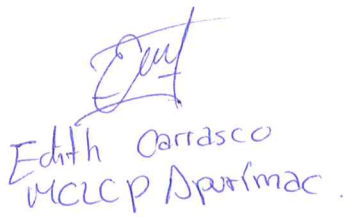 Edith Carrasco
MCLCP Apurímac.